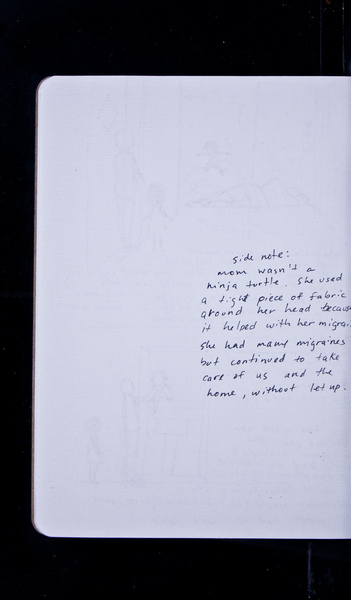 side note:
mom wasn't a
ninja turtle. She used
a tight piece of fabric
around her head becaus
it helped with her migrai
She had many migraines
but continued to take
care of us and the
home, without let up.